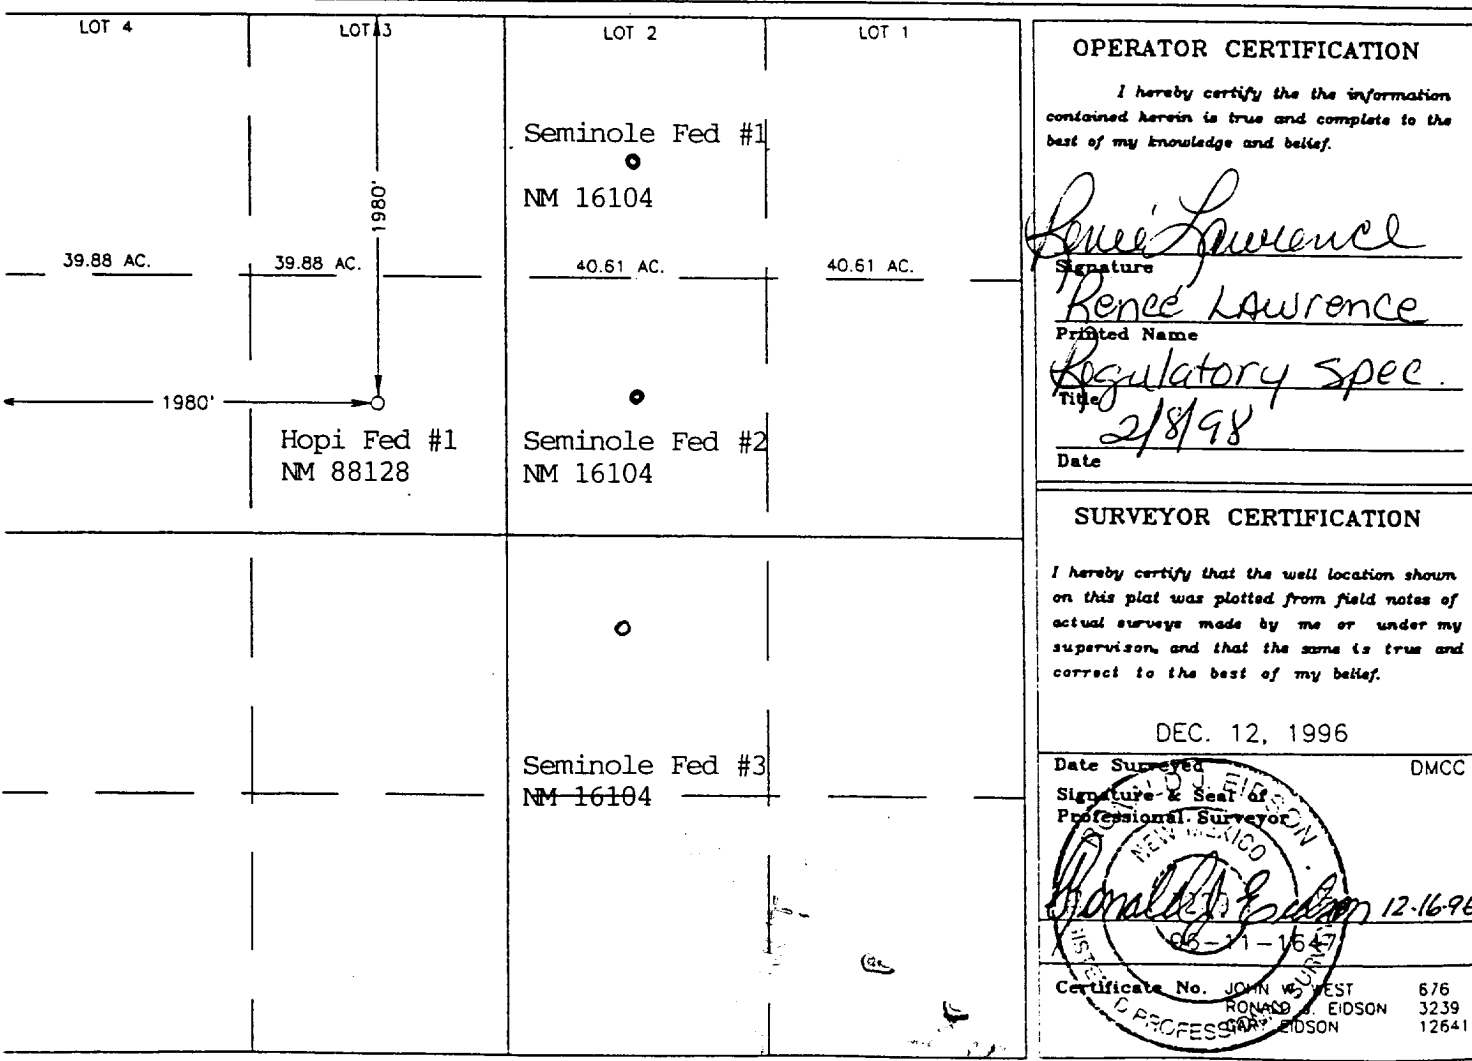 LOT 4
LOT 3
LOT 2
LOT 1
Seminole Fed #1
NM 16104
1980'
39.88 AC.
39.88 AC.
40.61 AC.
40.61 AC.
1980'
Hopi Fed #1
NM 88128
Seminole Fed #2
NM 16104
Seminole Fed #3
NM 16104
OPERATOR CERTIFICATION
I hereby certify the the information
contained herein is true and complete to the
best of my knowledge and belief.
Renée Lawrence
Signature
Renée LAWrence
Printed Name
Regulatory Spec.
Title
2/8/98
Date
SURVEYOR CERTIFICATION
I hereby certify that the well location shown
on this plat was plotted from field notes of
actual surveys made by me or under my
supervison, and that the same is true and
correct to the best of my belief.
DEC. 12, 1996
Date Surveyed
DMCC
Signature & Seal of
Professional Surveyor
RONALD J. EIDSON
NEW MEXICO
Ronald J. Eidson 12-16-96
96-11-1647
PROFESSIONAL SURVEYOR
Certificate No. JOHN W. WEST 676
RONALD J. EIDSON 3239
GARY EIDSON 12641